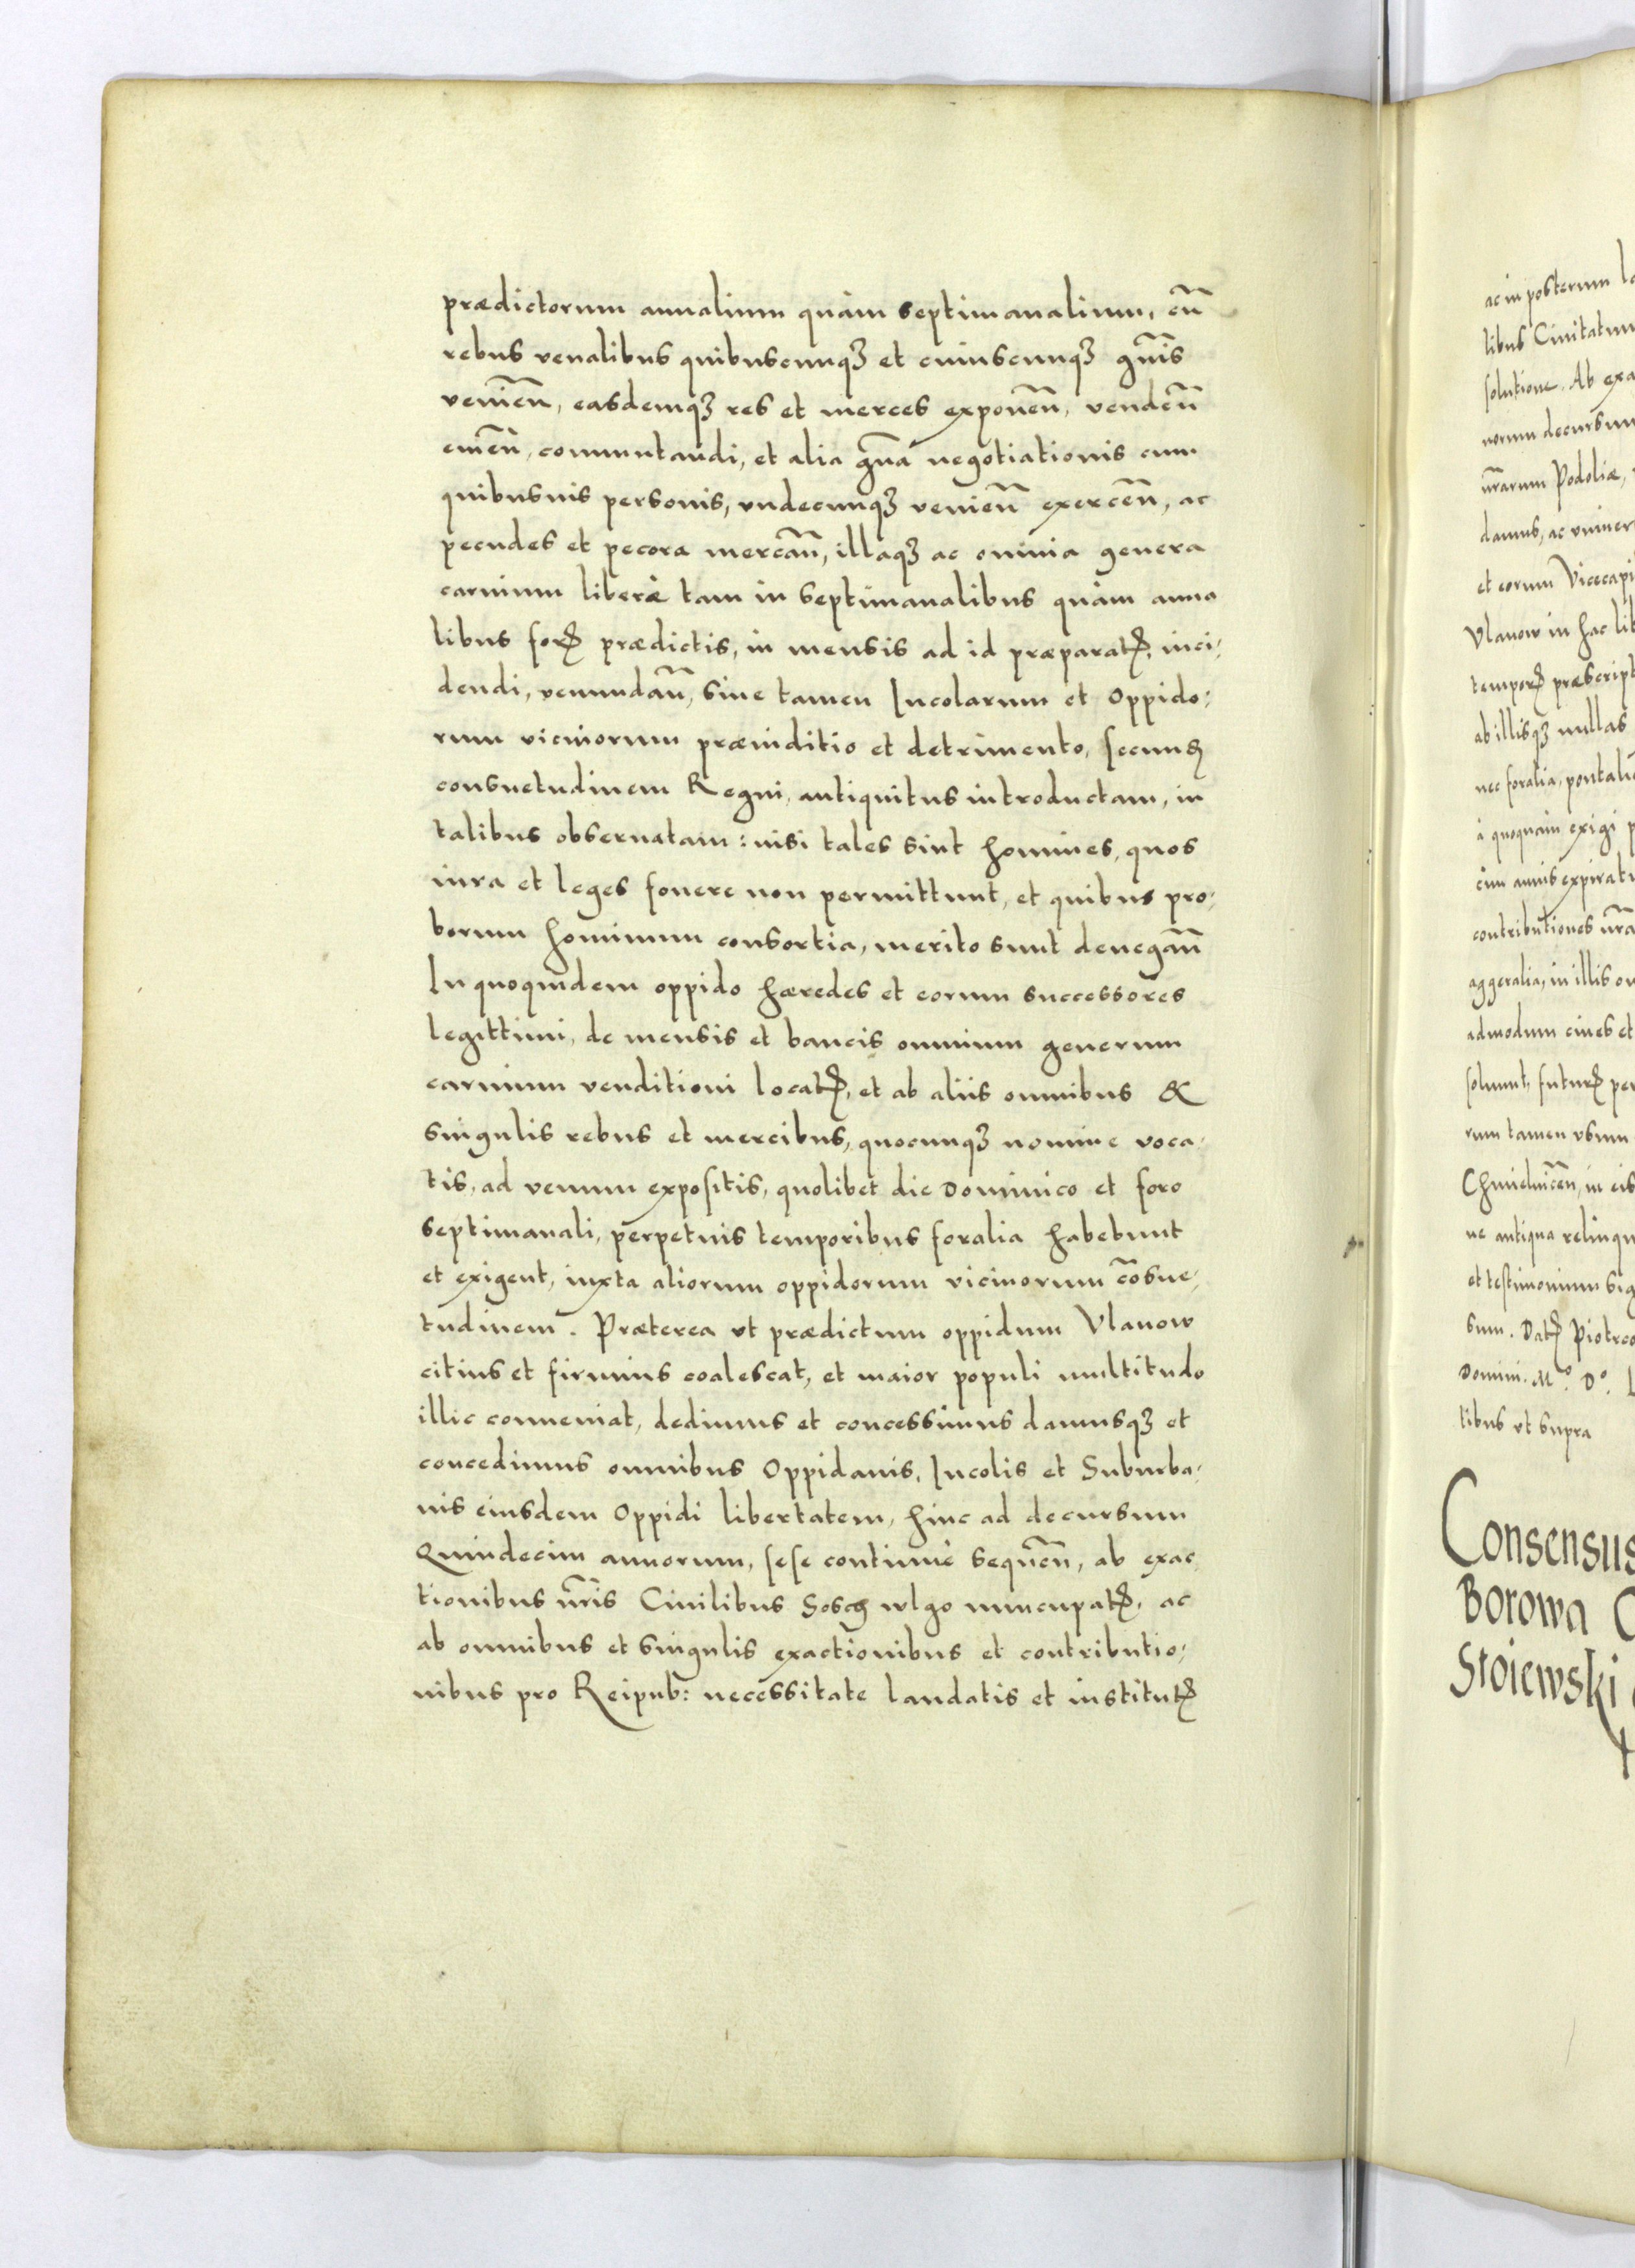 prædictorum annalium quàm septimanalium, cū
rebus venalibus quibuscunqꝫ et cuiuscunqꝫ gn̄is
venien̄, easdemqꝫ res et merces exponen̄, venden̄
emen̄, commutandi, et alia gn̄a negotiationis cum
quibusuis personis, vndecunqꝫ venien̄ exercen̄, ac
pecudes et pecora mercan̄, illaqꝫ ac omnia genera
carnium liberè tam in septimanalibus quàm anna
libus forꝭ prædictis, in mensis ad id præparatꝭ, inci,
dendi, venundan̄, sine tamen Incolarum et Oppido,
rum vicinorum præiuditio et detrimento, secunꝺ
consuetudinem Regni, antiquitus introductam, in
talibus obseruatam: nisi tales sint homines, quos
iura et leges fouere non permittunt, et quibus pro,
borum hominum consortia, merito sunt denegan̄
In quoquidem oppido hæredes et eorum successores
legittimi, de mensis et bancis omnium generum
carnium venditioni locatꝭ, et ab aliis omnibus &
singulis rebus et mercibus, quocunqꝫ nomine voca,
tis, ad venum expositis, quolibet die Dominico et foro
septimanali, perpetuis temporibus foralia habebunt
et exigent, iuxta aliorum oppidorum vicinorum cōsue,
tudinem. Præterea vt prædictum oppidum Vlanow
citius et firmius coalescat, et maior populi multitudo
illic conueniat, dedimus et concessimus damusqꝫ et
concedimus omnibus Oppidanis, Incolis et Suburba,
nis eiusdem Oppidi libertatem, hinc ad decursum
Quindecim annorum, sese continuè sequen̄, ab exac,
tionibus nr̄is Ciuilibus Soscꝫ wlgo nuncupatꝭ, ac
ab omnibus et singulis exactionibus et contributio,
nibus pro Reipub: necessitate laudatis et institutꝭ
ac in posterum
libus Ciuitatum
solutione. Ab
norum decursum
nr̄arum Podoliæ,
damus, ac
et eorum
Vlanow in hac
temporꝭ
ab illisqꝫ nullas
nec foralia,
à quoquam exigi
cim annis
contributiones
aggeralia, in illis
admodum ciues et
soluunt, futurꝭ
rum tamen vsum
Chmielnicen̄, in
ne antiqua
et testimonium
sum. Datꝭ
Domini. Mº. Dº.
tibus vt supra
Consensus
Borowa
Stoiewski